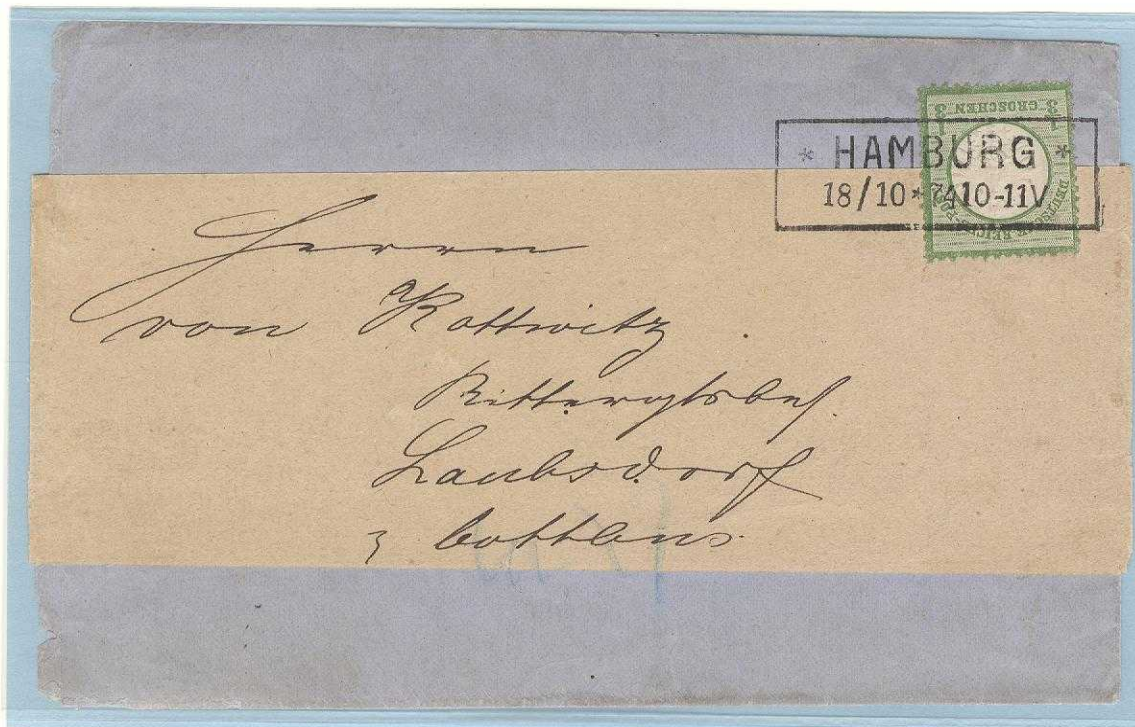 GROSCHEN
* HAMBURG *
18/10*74 10-11V
Herrn
von Kottwitz
Laubsdorf
z Cottbus